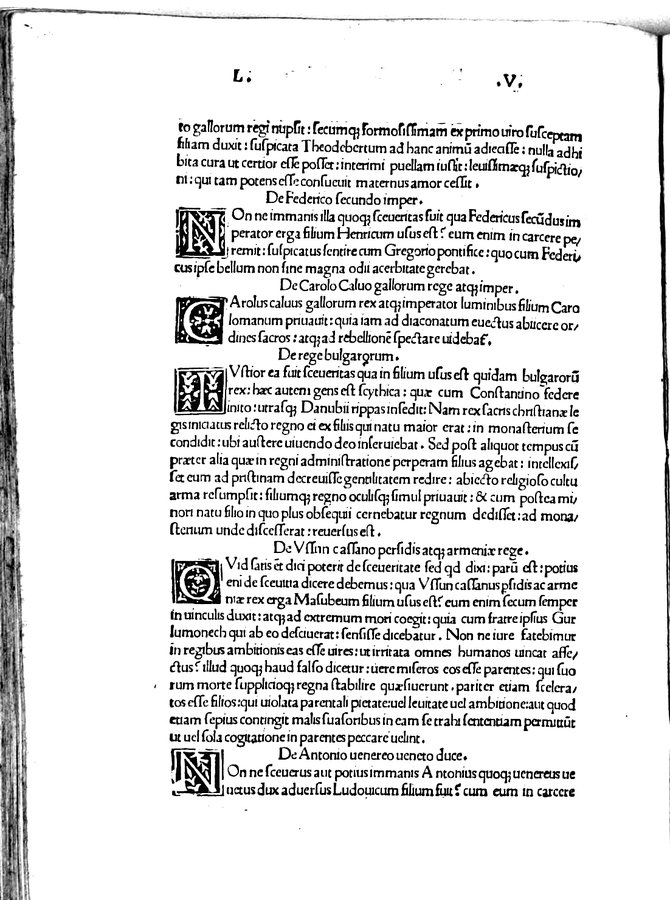 L. .V.
to gallorum regi nupsit : secumq; formosissimam ex primo uiro susceptam
filiam duxit : suspicata Theodebertum ad hanc animū adiecisse : nulla adhi
bita cura ut certior esse posset : interimi puellam iussit : leuissimæq; suspictio/
ni : qui tam potens esse consueuit maternus amor cessit .
De Federico secundo imper.
NOn ne immanis illa quoq; sceueritas fuit qua Federicus secūdus im
perator erga filium Henricum usus est? eum enim in carcere pe/
remit : suspicatus sentire cum Gregorio pontifice : quo cum Federi/
cus ipse bellum non sine magna odii acerbitate gerebat .
De Carolo Caluo gallorum rege atq; imper.
CArolus caluus gallorum rex atq; imperator luminibus filium Caro
lomanum priuauit : quia iam ad diaconatum euectus abiicere or/
dines sacros : atq; ad rebellionē spectare uidebat̃.
De rege bulgarorum .
IUstior ea fuit sceueritas qua in filium usus est quidam bulgarorū
rex : hæc autem gens est scythica : quæ cum Constantino federe
inito : utrasq; Danubii rippas insedit : Nam rex sacris christianæ le
gis iniciatus relicto regno ei ex filiis qui natu maior erat : in monasterium se
condidit : ubi austere uiuendo deo inseruiebat . Sed post aliquot tempus cū
præter alia quæ in regni administratione perperam filius agebat : intellexis/
set eum ad pristinam decreuisse gentilitatem redire : abiecto religioso cultu
arma resumpsit : filiumq; regno oculisq; simul priuauit : & cum postea mi/
nori natu filio in quo plus obsequii cernebatur regnum dedisset : ad mona/
sterium unde discesserat : reuersus est .
De Ussun cassano persidis atq; armeniæ rege .
QUid satis ēt dici poterit de sceueritate sed qd dixi : parū est : potius
eni de sceuitia dicere debemus : qua Ussun cassanus psidis ac arme
niæ rex erga Masubeum filium usus est? eum enim secum semper
in uinculis duxit : atq; ad extremum mori coegit : quia cum fratre ipsius Gur
lumonech qui ab eo desciuerat : sensisse dicebatur . Non ne iure fatebimur
in regibus ambitionis eas esse uires : ut irritata omnes humanos uincat affe/
ctus? illud quoq; haud falso dicetur : uere miseros eos esse parentes : qui suo
rum morte supplicioq; regna stabilire quæsiuerunt , pariter etiam scelera/
tos esse filios : qui uiolata parentali pietate : uel leuitate uel ambitione : aut quod
etiam sepius contingit malis suasoribus in eam se trahi sententiam permittūt
ut uel sola cogitatione in parentes peccare uelint .
De Antonio uenereo ueneto duce .
NOn ne sceuerus aut potius immanis Antonius quoq; uenereus ue
netus dux aduersus Ludouicum filium fuit? cum eum in carcere